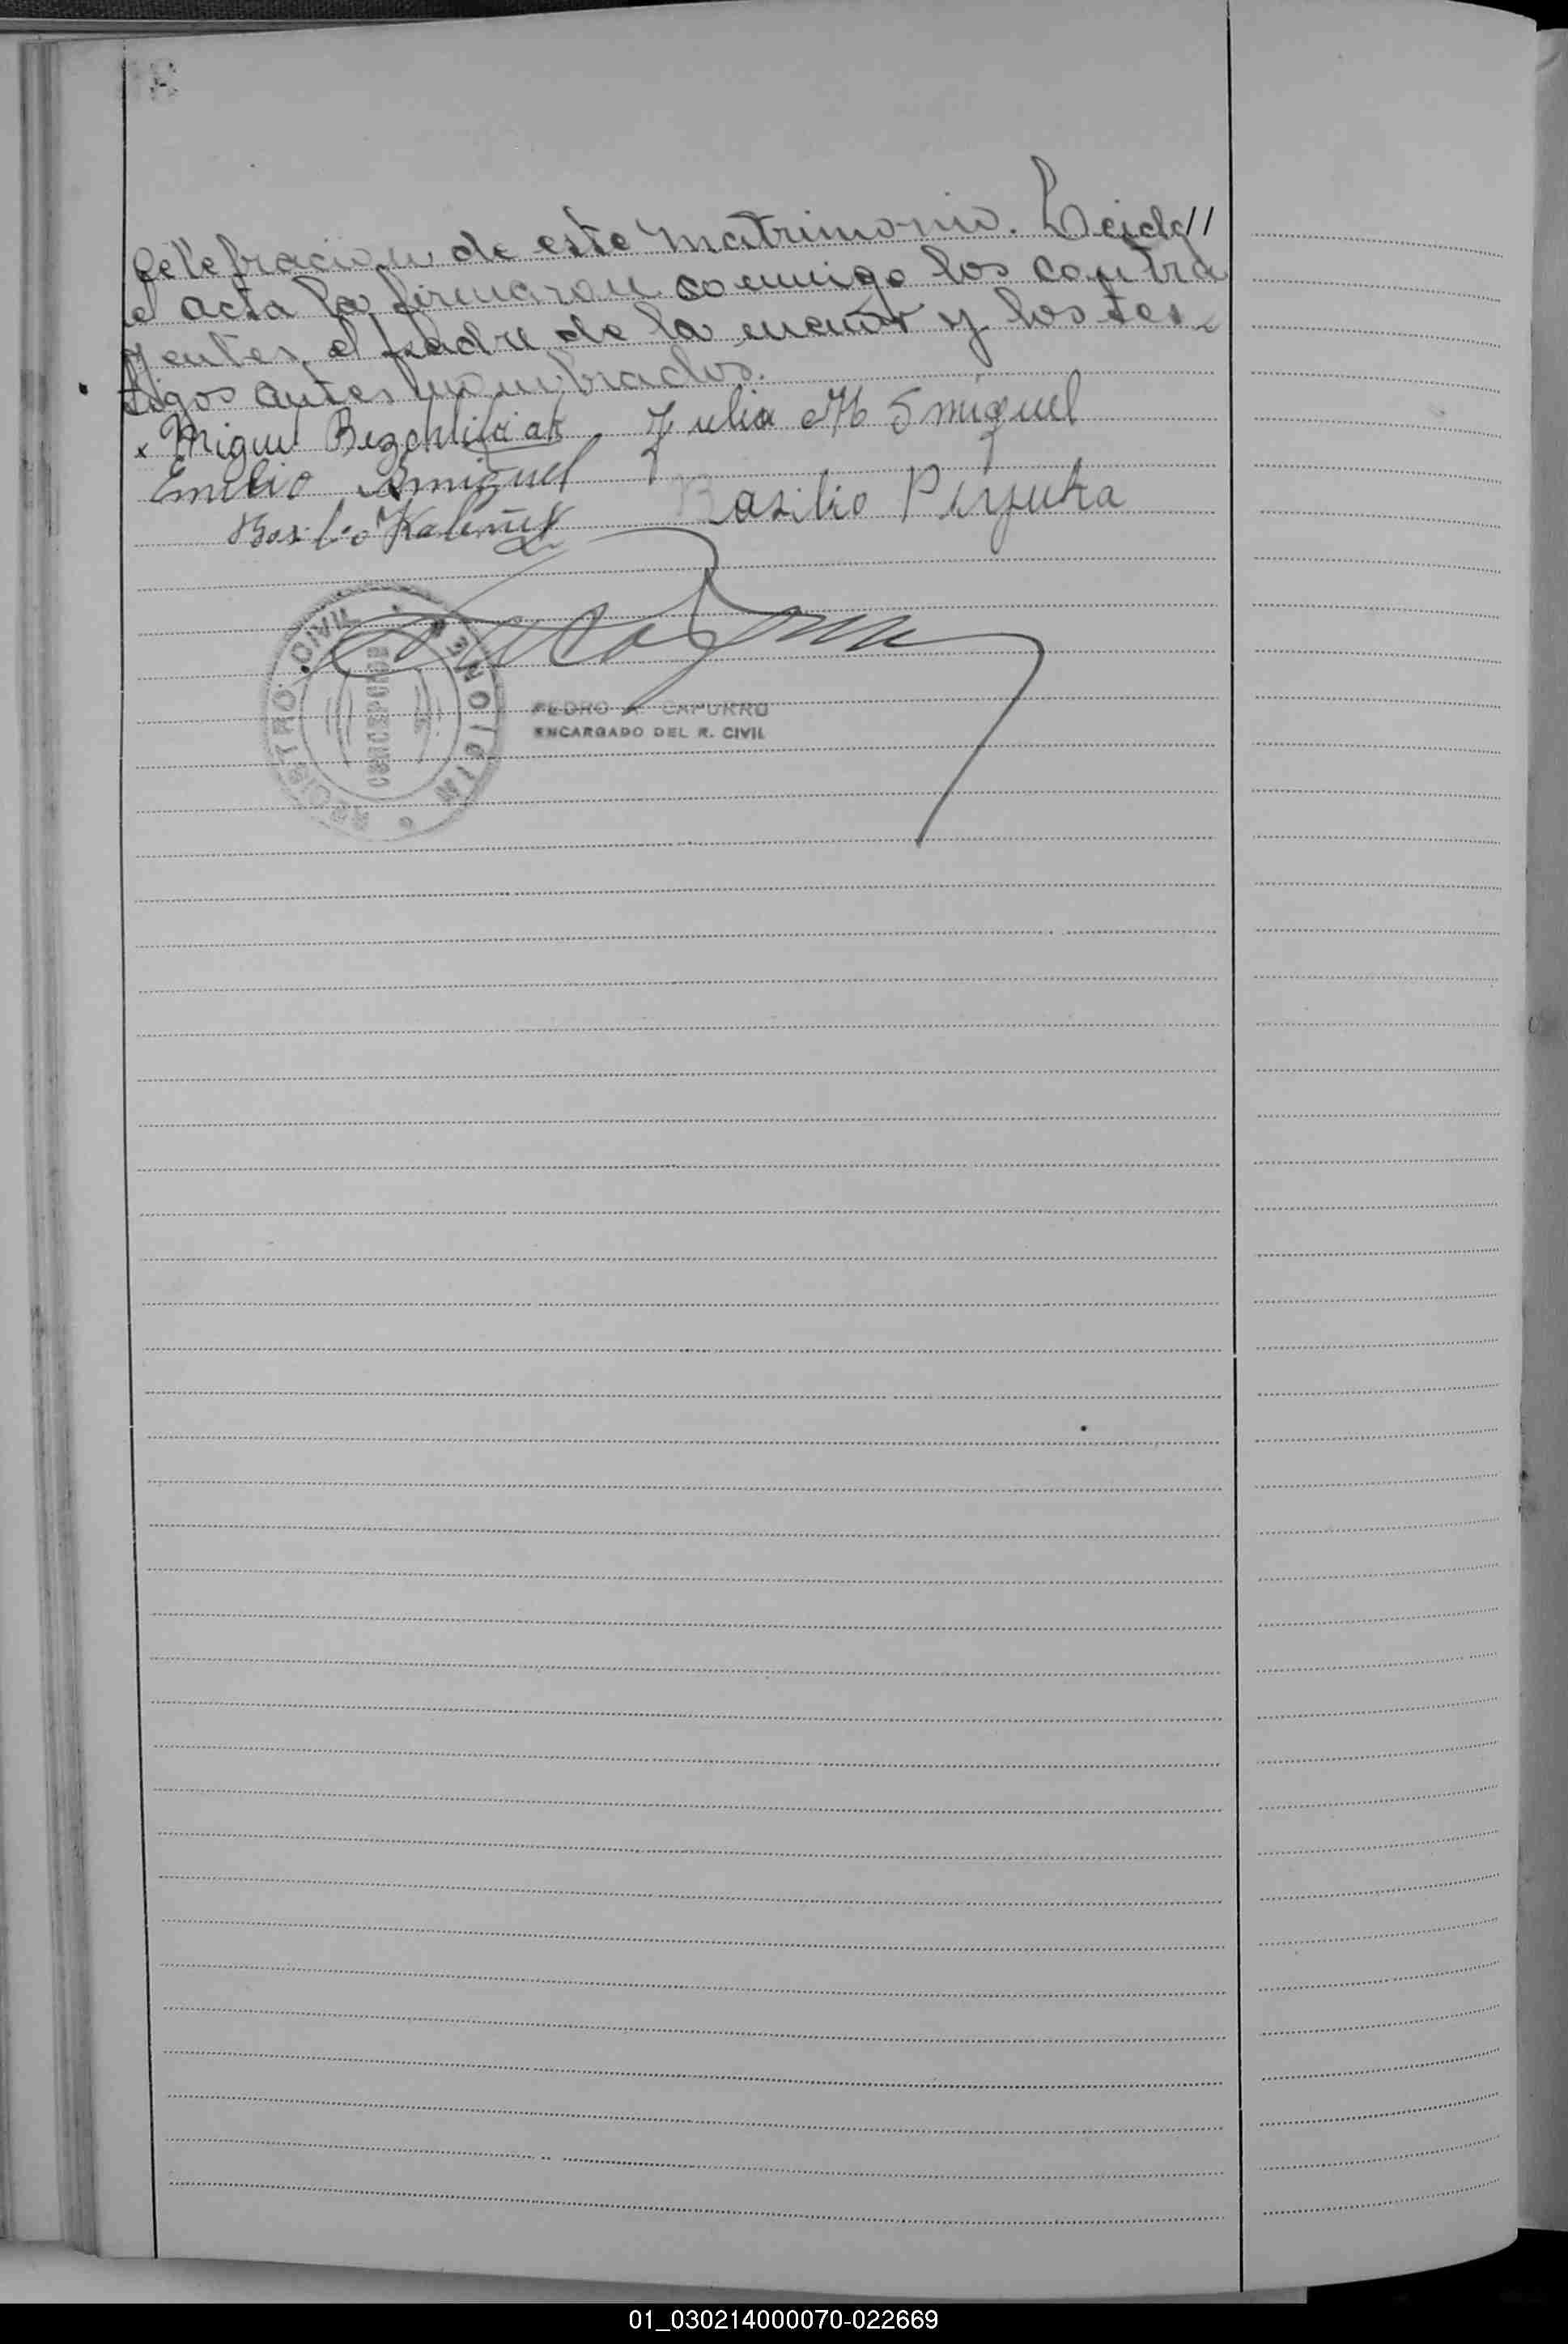 Celebracion de este Matrimonio. Leida//
el acta la firmaron conmigo los contra
yentes, el padre de la menor y los tes-
tigos antes nombrados.
Miguel
Julia M Smiguel
Emilio Smiguel
Basilio
Basilio
REGISTRO CIVIL
MISIONES
CONCEPCION
PEDRO A. CAPURRO
ENCARGADO DEL R. CIVIL
01_030214000070-022669